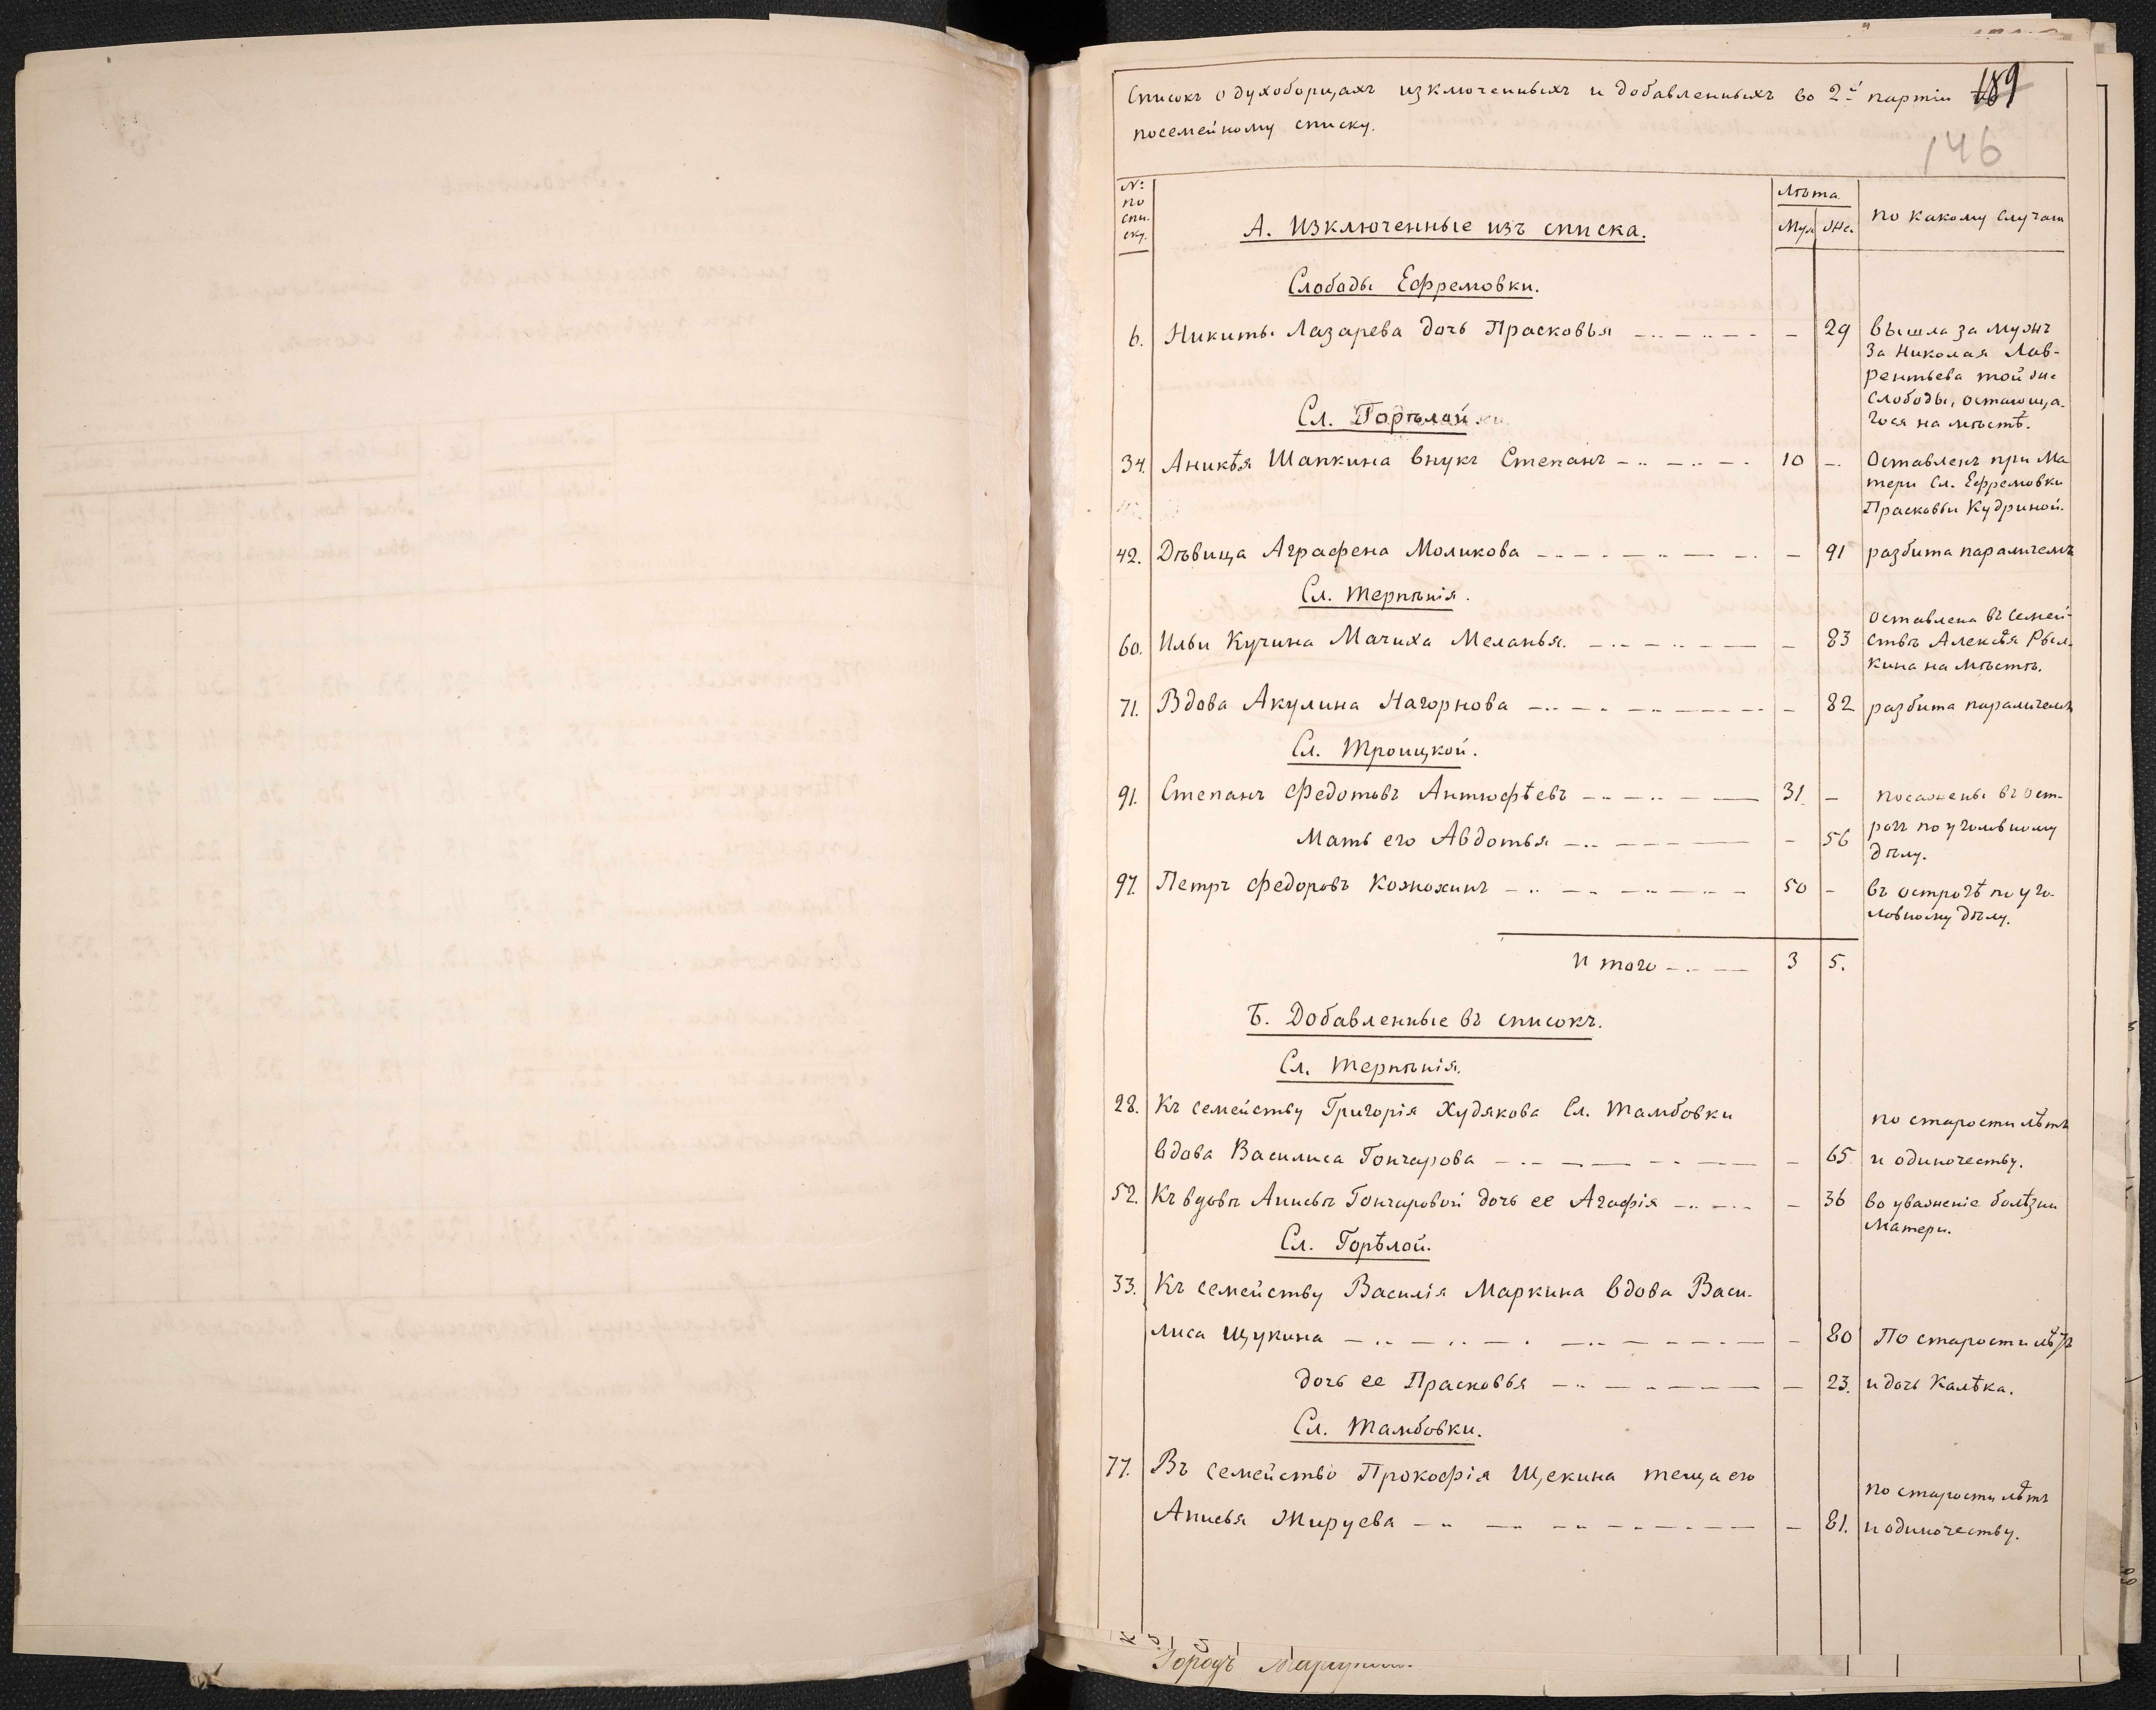 Списокъ о духоборцахъ изключенныхъ и добавленныхъ во 2й партіи
189
посемейному списку.
146
№ по спи- ску.
А. Изключенные изъ списка.
Лѣта.
Муж Же.
По какому случаю
Слободы Ефремовки.
6. Никиты Лазарева дочь Прасковья — 29 вышла за мужъ
за Николая Лав-
рентьева той же
слободы, остающа-
гося на мѣстѣ.
Сл. Горѣлой.
34. Аникѣя Шапкина внукъ Степанъ 10 — Оставленъ при ма
тери Сл. Ефремовки
Прасковьи Кудриной.
42. Дѣвица Аграфена Моликова — 91 разбита параличемъ
Сл. Терпѣнія.
оставлена въ семей-
60. Ильи Кучина Мачиха Меланья. — 83 ствѣ Алексѣя Рыл-
кина на мѣстѣ.
71. Вдова Акулина Нагорнова — 82 разбита параличемъ
Сл. Троицкой.
91. Степанъ Федотовъ Антюфѣевъ 31. — посажены въ ост-
рогъ по уголовному
Мать его Авдотья — 56
дѣлу.
97. Петръ Федоровъ Кожохинъ 50 — въ острогѣ по уго-
ловному дѣлу.
Итого 3 5.
Б. Добавленные въ списокъ.
Сл. Терпѣнія.
28. Къ семейству Григорія Худякова Сл. Тамбовки
по старости лѣтъ
вдова Василиса Гончарова — 65 и одиночеству.
52. Къ вдовѣ Анисьѣ Гончаровой дочь ее Агафія — 36 во уваженіе болѣзни
Матери.
Сл. Горѣлой.
33. Къ семейству Василія Маркина вдова Васи-
лиса Щукина — 80 По старости лѣтъ
дочь ее Прасковья — 23. и дочь Калѣка.
Сл. Тамбовки.
77. Въ семейство Прокофія Щекина теща его
по старости лѣтъ
Анисья Жируева — 81. и одиночеству.
Городъ